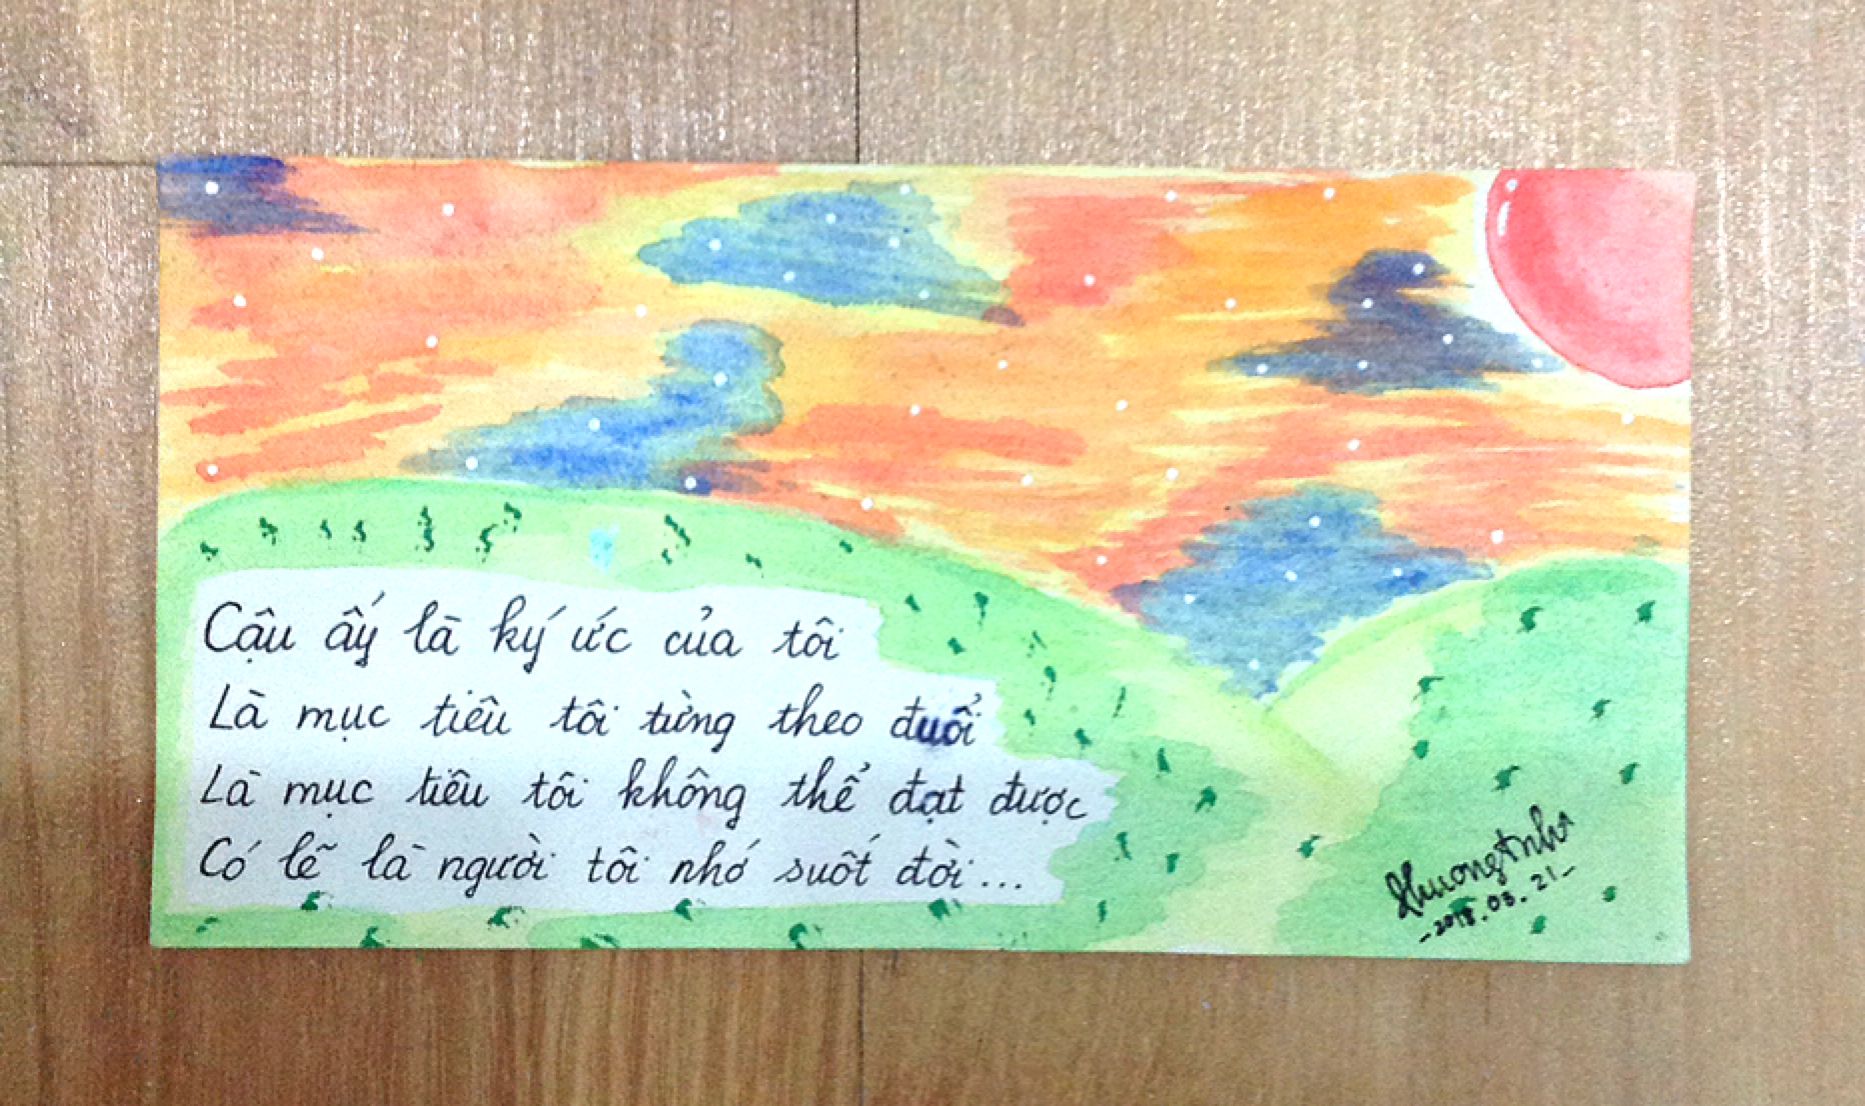 Cậu ấy là ký ức của tôi
Là mục tiêu tôi từng theo đuổi
Là mục tiêu tôi không thể đạt được
Có lẽ là người tôi nhớ suốt đời...
-2018.03.21-